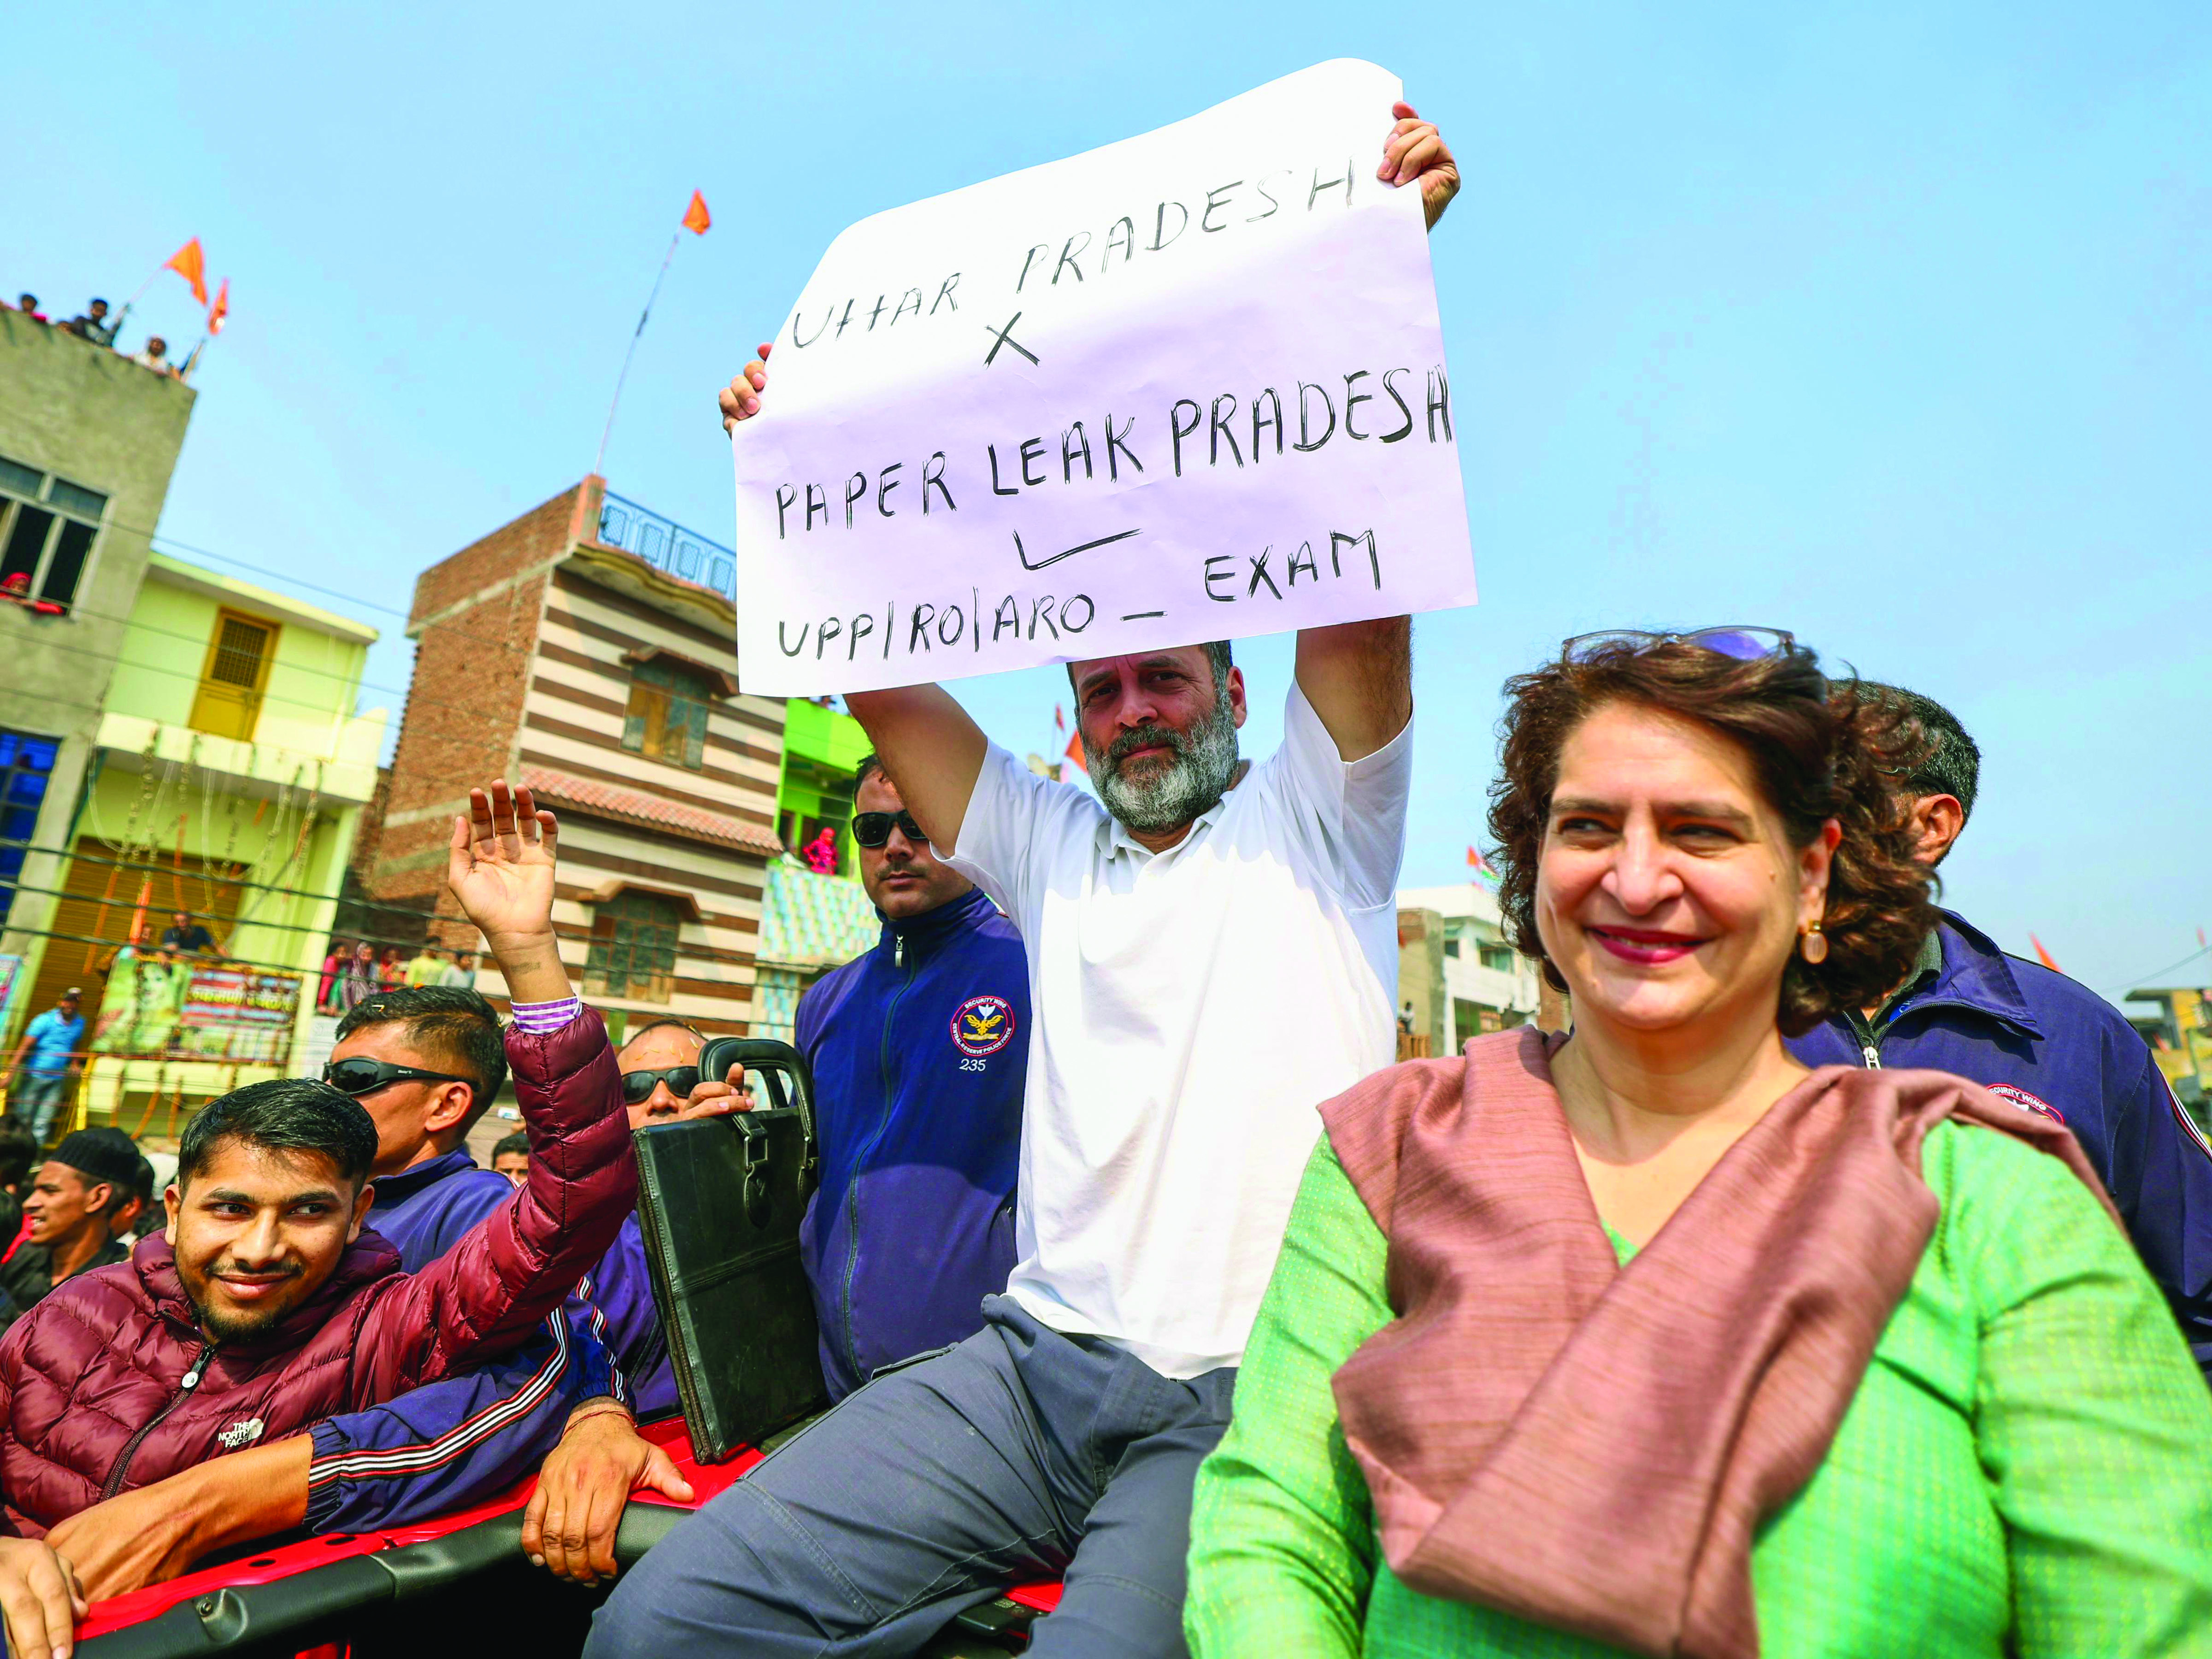 UttAR PRADESH
X
PAPER LEAK PRADESH
✓
UPP|RO|ARO – EXAM
SECURITY WING
235
THE
NORTH
FACE